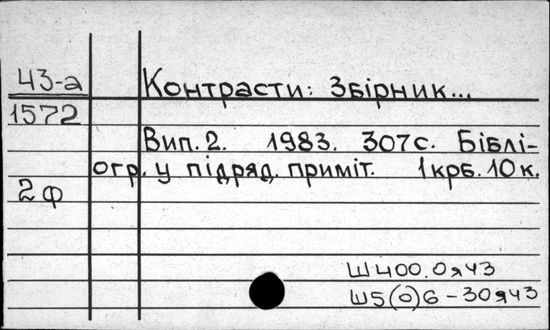 43-а
Контрасти: Збірник...
1572
Вип. 2. 1983. 307с. Біблі-
огр. у підряд. приміт. 1крб. 10к.
2ф
Ш400.0я43
Ш5(0)6-30я43